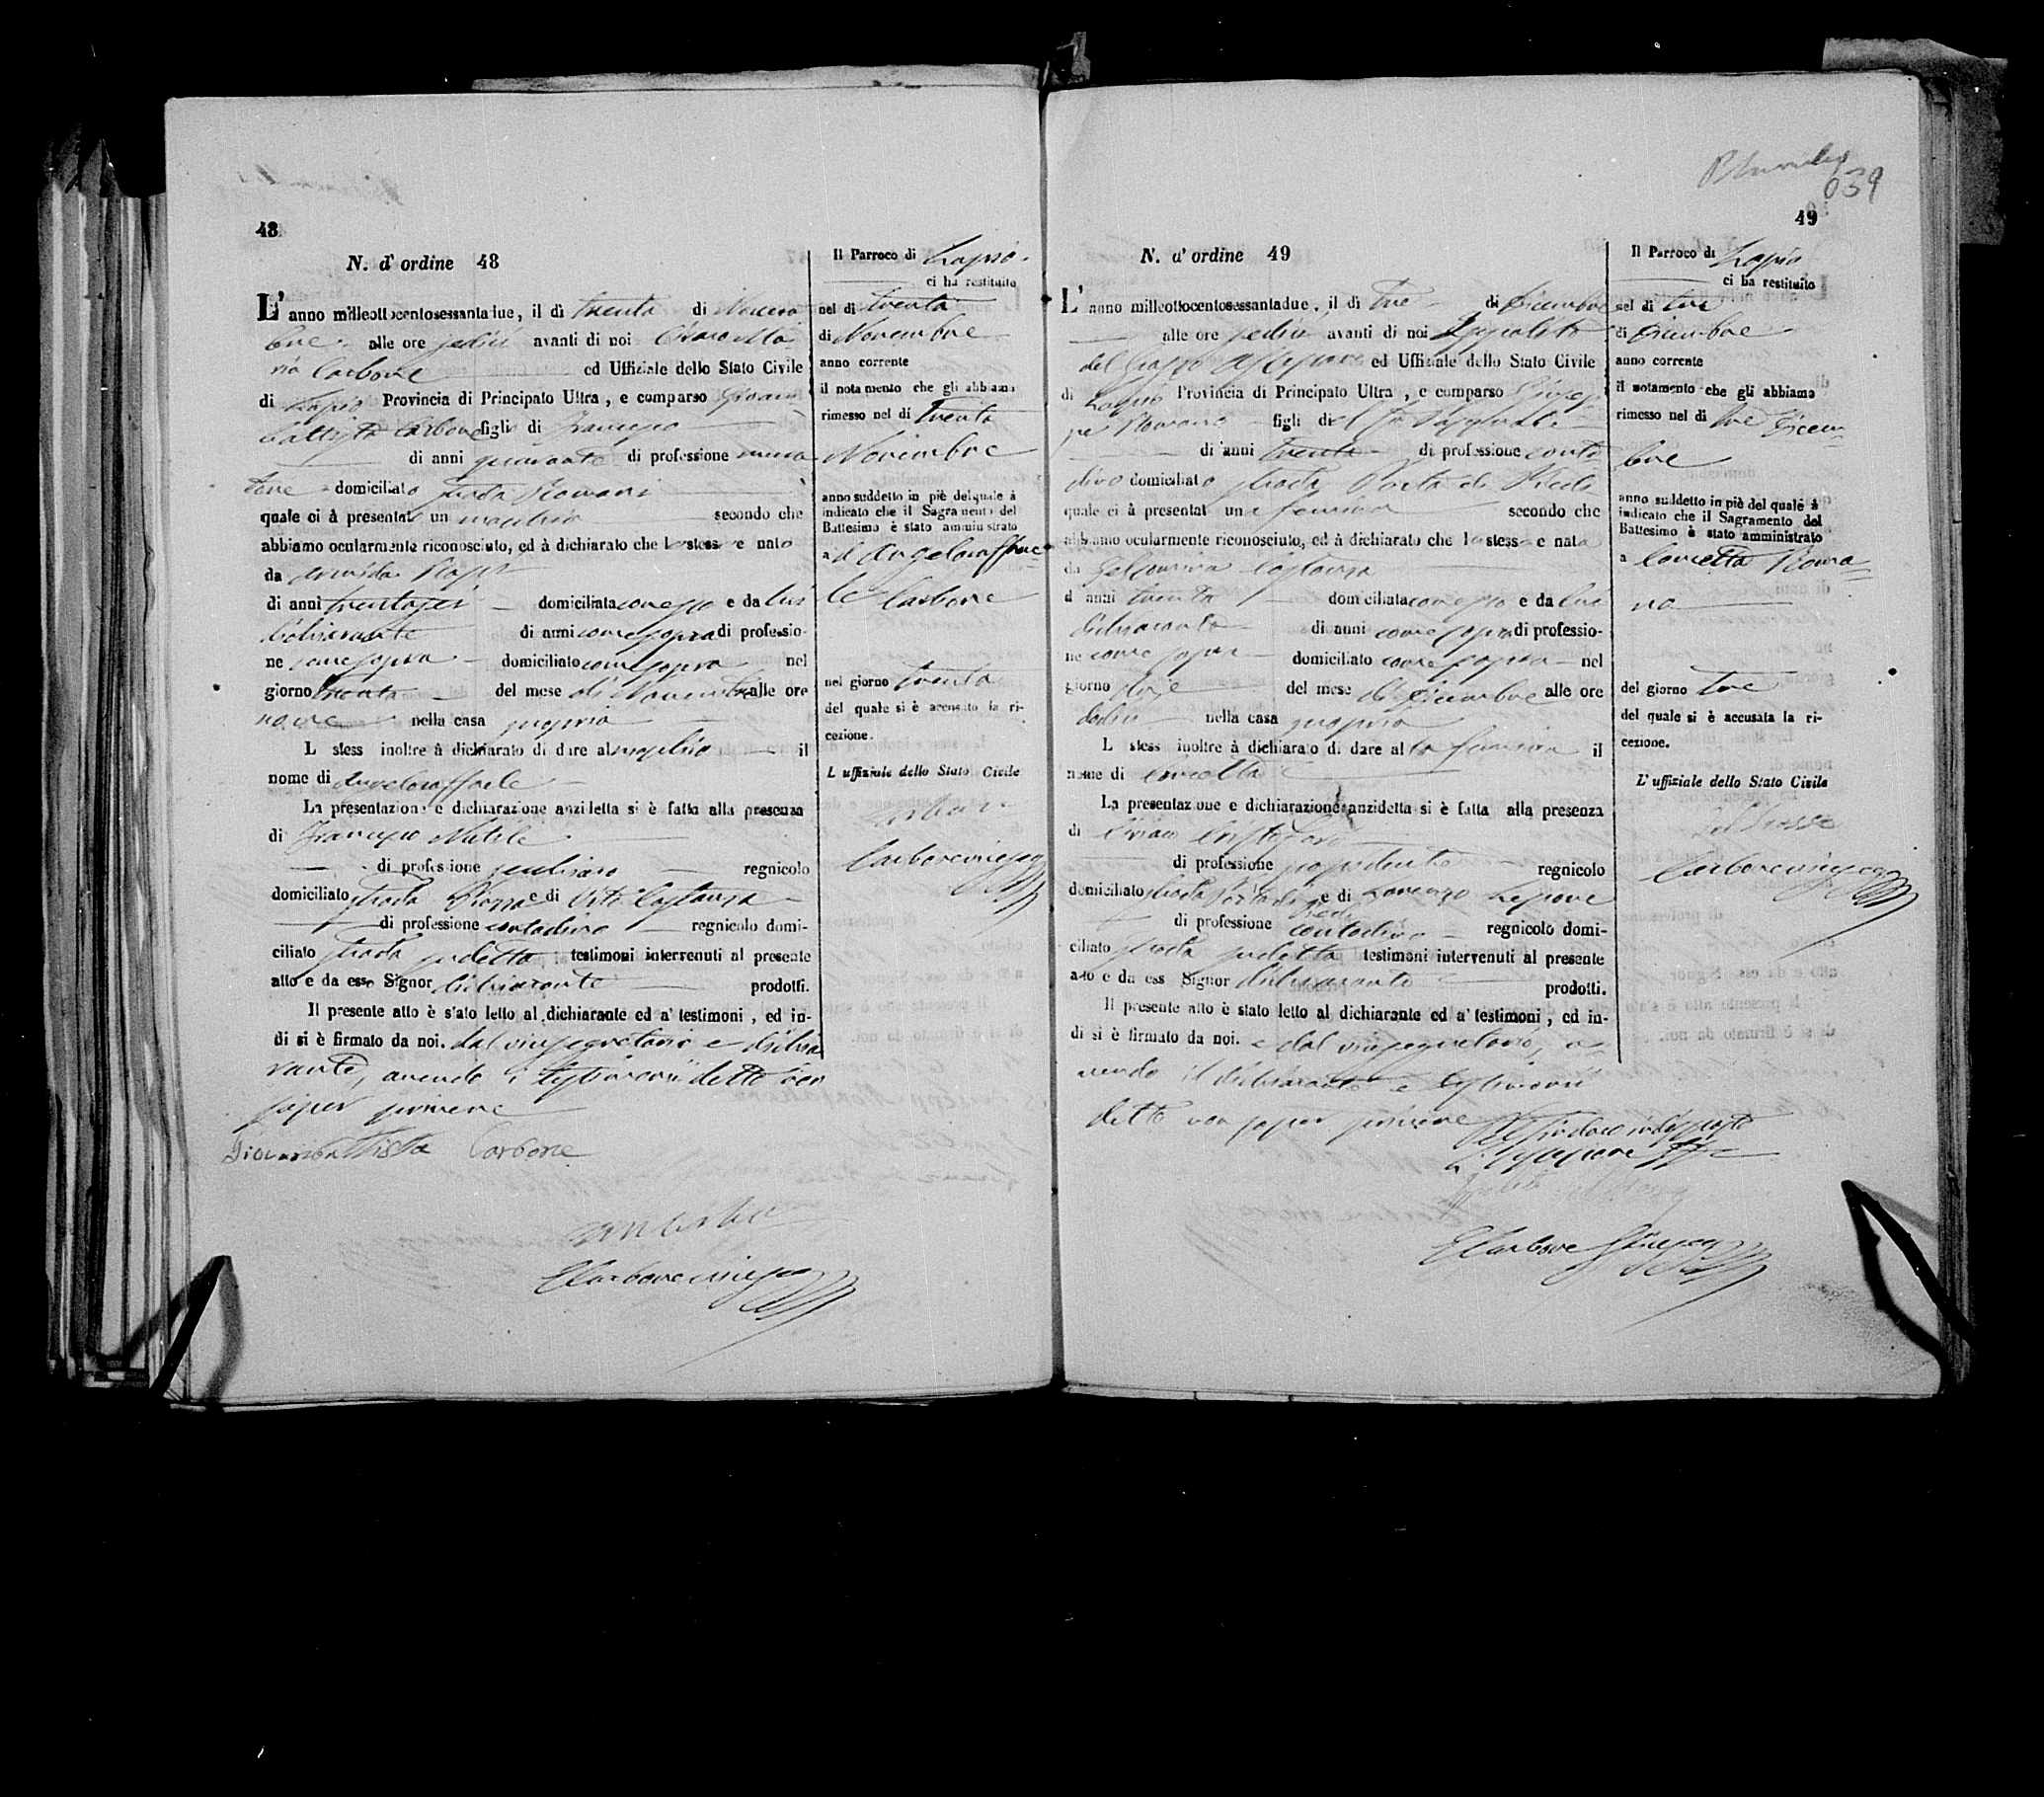 48
N. d' ordine 48
L' anno milleottocentosessantadue, il dì trenta di Novem
bre alle ore sedici avanti di noi
ria Carbone ed Uffiziale dello Stato Civile
di Lapio Provincia di Principato Ultra, e comparso Giovam
battista Carbone figli di Francesco
di anni quaranta di professione mura
tore domiciliato strada Romani
quale ci à presentato un maschio secondo che
abbiamo ocularmente riconosciuto, ed à dichiarato che lo stesso e nato
da
di anni trentasei domiciliata con esso e da lui
dichiarante di anni come sopra di professio-
ne come sopra domiciliato come sopra nel
giorno trenta del mese di Novembre alle ore
nove nella casa propria
L stess inoltre à dichiarato di dare al maschio il
nome di Angeloraffaele
La presentazione e dichiarazione anzidetta si è fatta alla presenza
di Francesco
di professione regnicolo
domiciliato strada Piazza e di Vito Costanza
di professione contadino regnicolo domi-
ciliato strada sudetta testimoni intervenuti al presente
atto e da esso Signor dichiarante prodotti.
Il presente atto è stato letto al dichiarante ed a' testimoni, ed in-
di si è firmato da noi. dal vicesegretario e dichia
rante, avendo i testimonii detto non
saper scrivere
Giovanbattista Carbone
Carbone vicesegr
Il Parroco di Lapio
ci ha restituito
nel dì trenta
di Novembre
anno corrente
il notamento che gli abbiamo
rimesso nel dì Trenta
Novembre
anno suddetto in piè del quale à
indicato che il Sagramento del
Battesimo è stato amministrato
a d'Angeloraffae
le Carbone
nel giorno trenta
del quale si è accusato la ri-
cezione.
L' uffiziale dello Stato Civile
Carbone vicesegr
039
49
N. d' ordine 49
L' anno milleottocentosessantadue, il dì tre di Dicembre
alle ore sedici avanti di noi Ippolito
del Grosso ed Uffiziale dello Stato Civile
di Lapio Provincia di Principato Ultra, e comparso Giusep
pe Romano figli del fu Pasquale
di anni trenta di professione conta
dino domiciliato strada Porta di
quale ci à presentat una femina secondo che
abbiamo ocularmente riconosciuto, ed à dichiarato che la stessa e nata
da Gelsomina Costanza
d anni trenta domiciliata con esso e da lui
dichiarante di anni come sopra di professio-
ne come sopra domiciliato come sopra nel
giorno del mese di Dicembre alle ore
dodici nella casa propria
L stess inoltre à dichiarato di dare al la femina il
nome di Concetta
La presentazione e dichiarazione anzidetta si è fatta alla presenza
di Ciriaco
di professione regnicolo
domiciliato strada e di Lorenzo Lepore
di professione contadino regnicolo domi-
ciliato strada sudetta testimoni intervenuti al presente
atto e da ess Signor dichiarante prodotti.
Il presente atto è stato letto al dichiarante ed a' testimoni, ed in-
di si è firmato da noi. e dal vicesegretario, a
vendo il dichiarante e testimonii
detto non saper scrivere
Carbone Vicesegr
Il Parroco di Lapio
ci ha restituito
nel dì tre
di Dicembre
anno corrente
il notamento che gli abbiamo
rimesso nel dì tre Dicem
bre
anno suddetto in piè del quale à
indicato che il Sagramento del
Battesimo è stato amministrato
a Concetta Roma
no
del giorno tre
del quale si è accusata la ri-
cezione.
L' uffiziale dello Stato Civile
Del Grosso
Carbone vicesegr